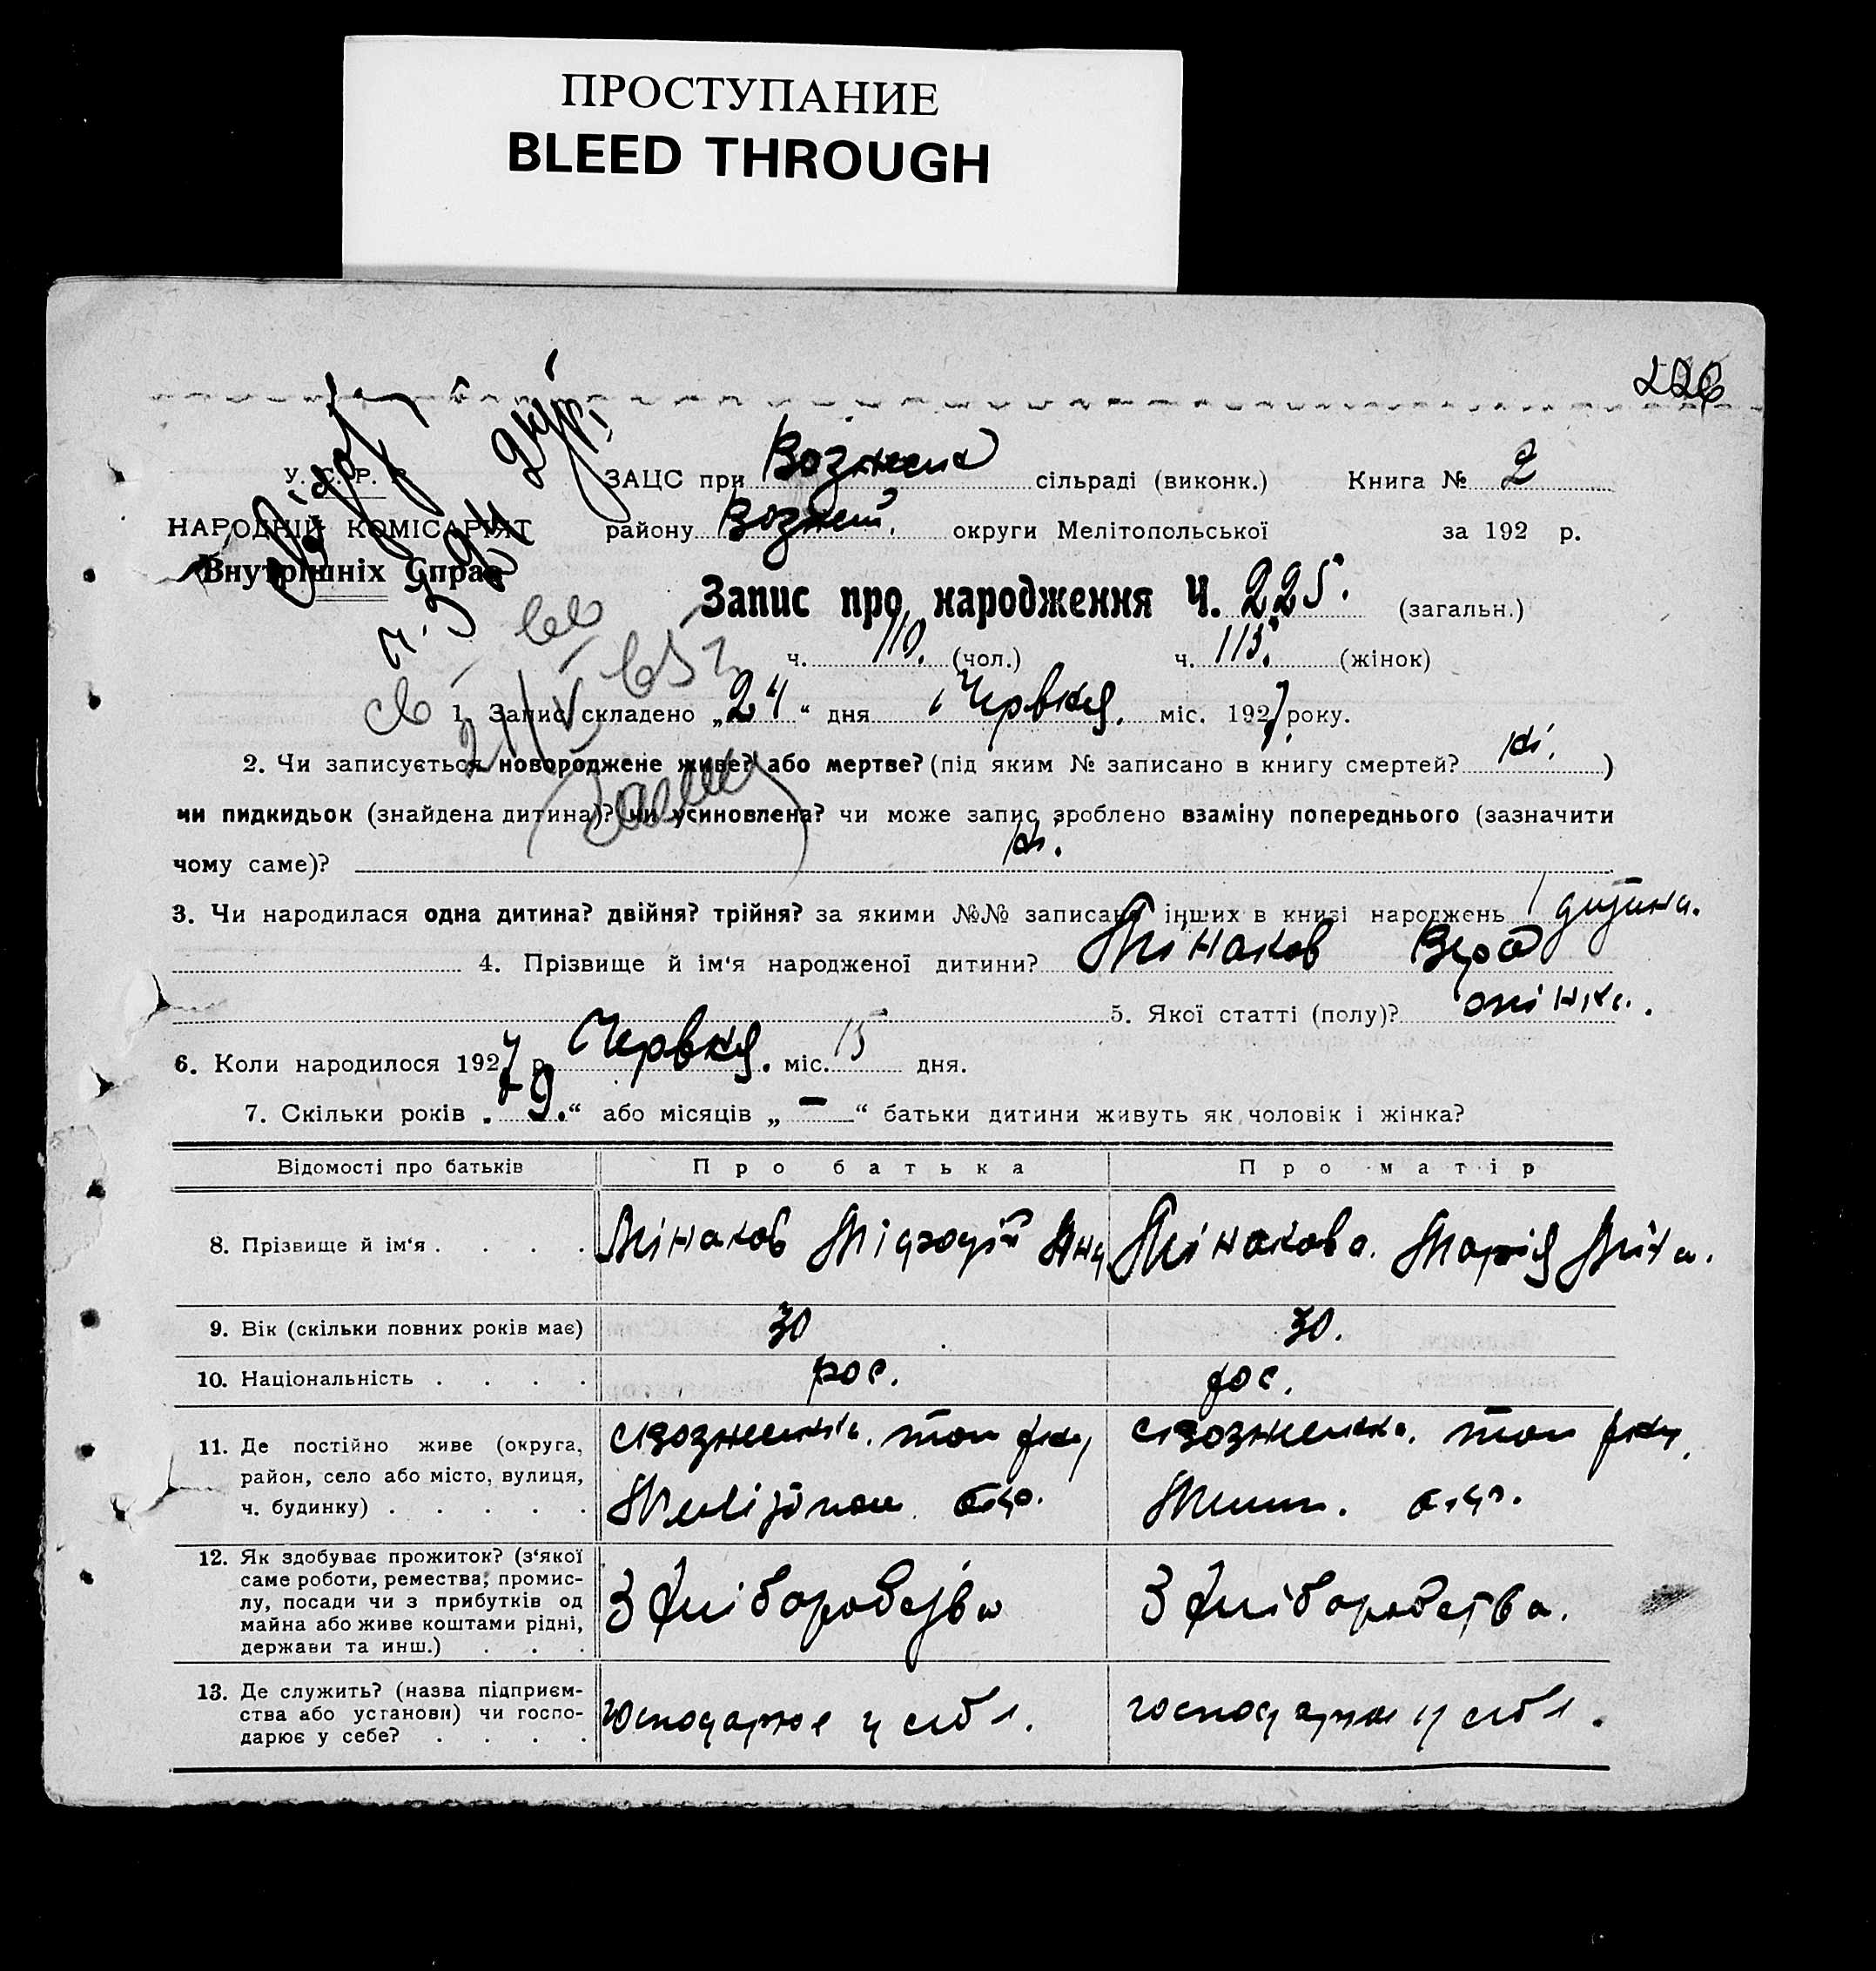 ПРОСТУПАНИЕ
BLEED THROUGH
226
У. С. Р. Р.
НАРОДНІЙ КОМІСАРІЯТ
Внутрішніх Справ
ЗАЦС при сільраді (виконк.) Книга № 2
району округи Мелітопольської за 192 р.
Запис про народження Ч. 225. (загальн.)
ч. 110. (чол.) ч. 115. (жінок)
1. Запис складено „24“ дня Червня. міс. 1927 року.
2. Чи записується новороджене живе? або мертве? (під яким № записано в книгу смертей? ні. )
чи пидкидьок (знайдена дитина)? чи усиновлена? чи може запис зроблено взаміну попереднього (зазначити
чому саме)? ні.
3. Чи народилася одна дитина? двійня? трійня? за якими №№ записано інших в книзі народжень 1 дитина.
4. Прізвище й ім‘я народженої дитини? Мінаков Вера
5. Якої статті (полу)? жінка.
6. Коли народилося 1927 р. Червня. міс. 15 дня.
7. Скільки років „9.“ або місяців „—“ батьки дитини живуть як чоловік і жінка?
Відомості про батьків Про батька Про матір
8. Прізвище й ім‘я . . . . Мінаков Мінакова. Марія
9. Вік (скільки повних років має) 30 30.
10. Національність . . . . рос. рос.
11. Де постійно живе (округа,
район, село або місто, вулиця,
ч. будинку) . . . . .
12. Як здобуває прожиток? (з‘якої
саме роботи, ремества, промис-
лу, посади чи з прибутків од
майна або живе коштами рідні,
держави та инш.) . . .
З хліборобства З хліборобства.
13. Де служить? (назва підприєм-
ства або установи) чи госпо-
дарює у себе? . . . .
господарює у себе. господарює у себе.